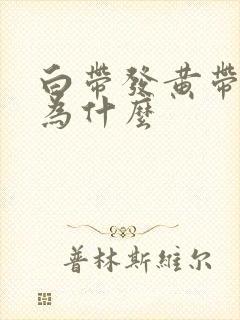 白帶發黃帶
為什麼
普林斯維尔